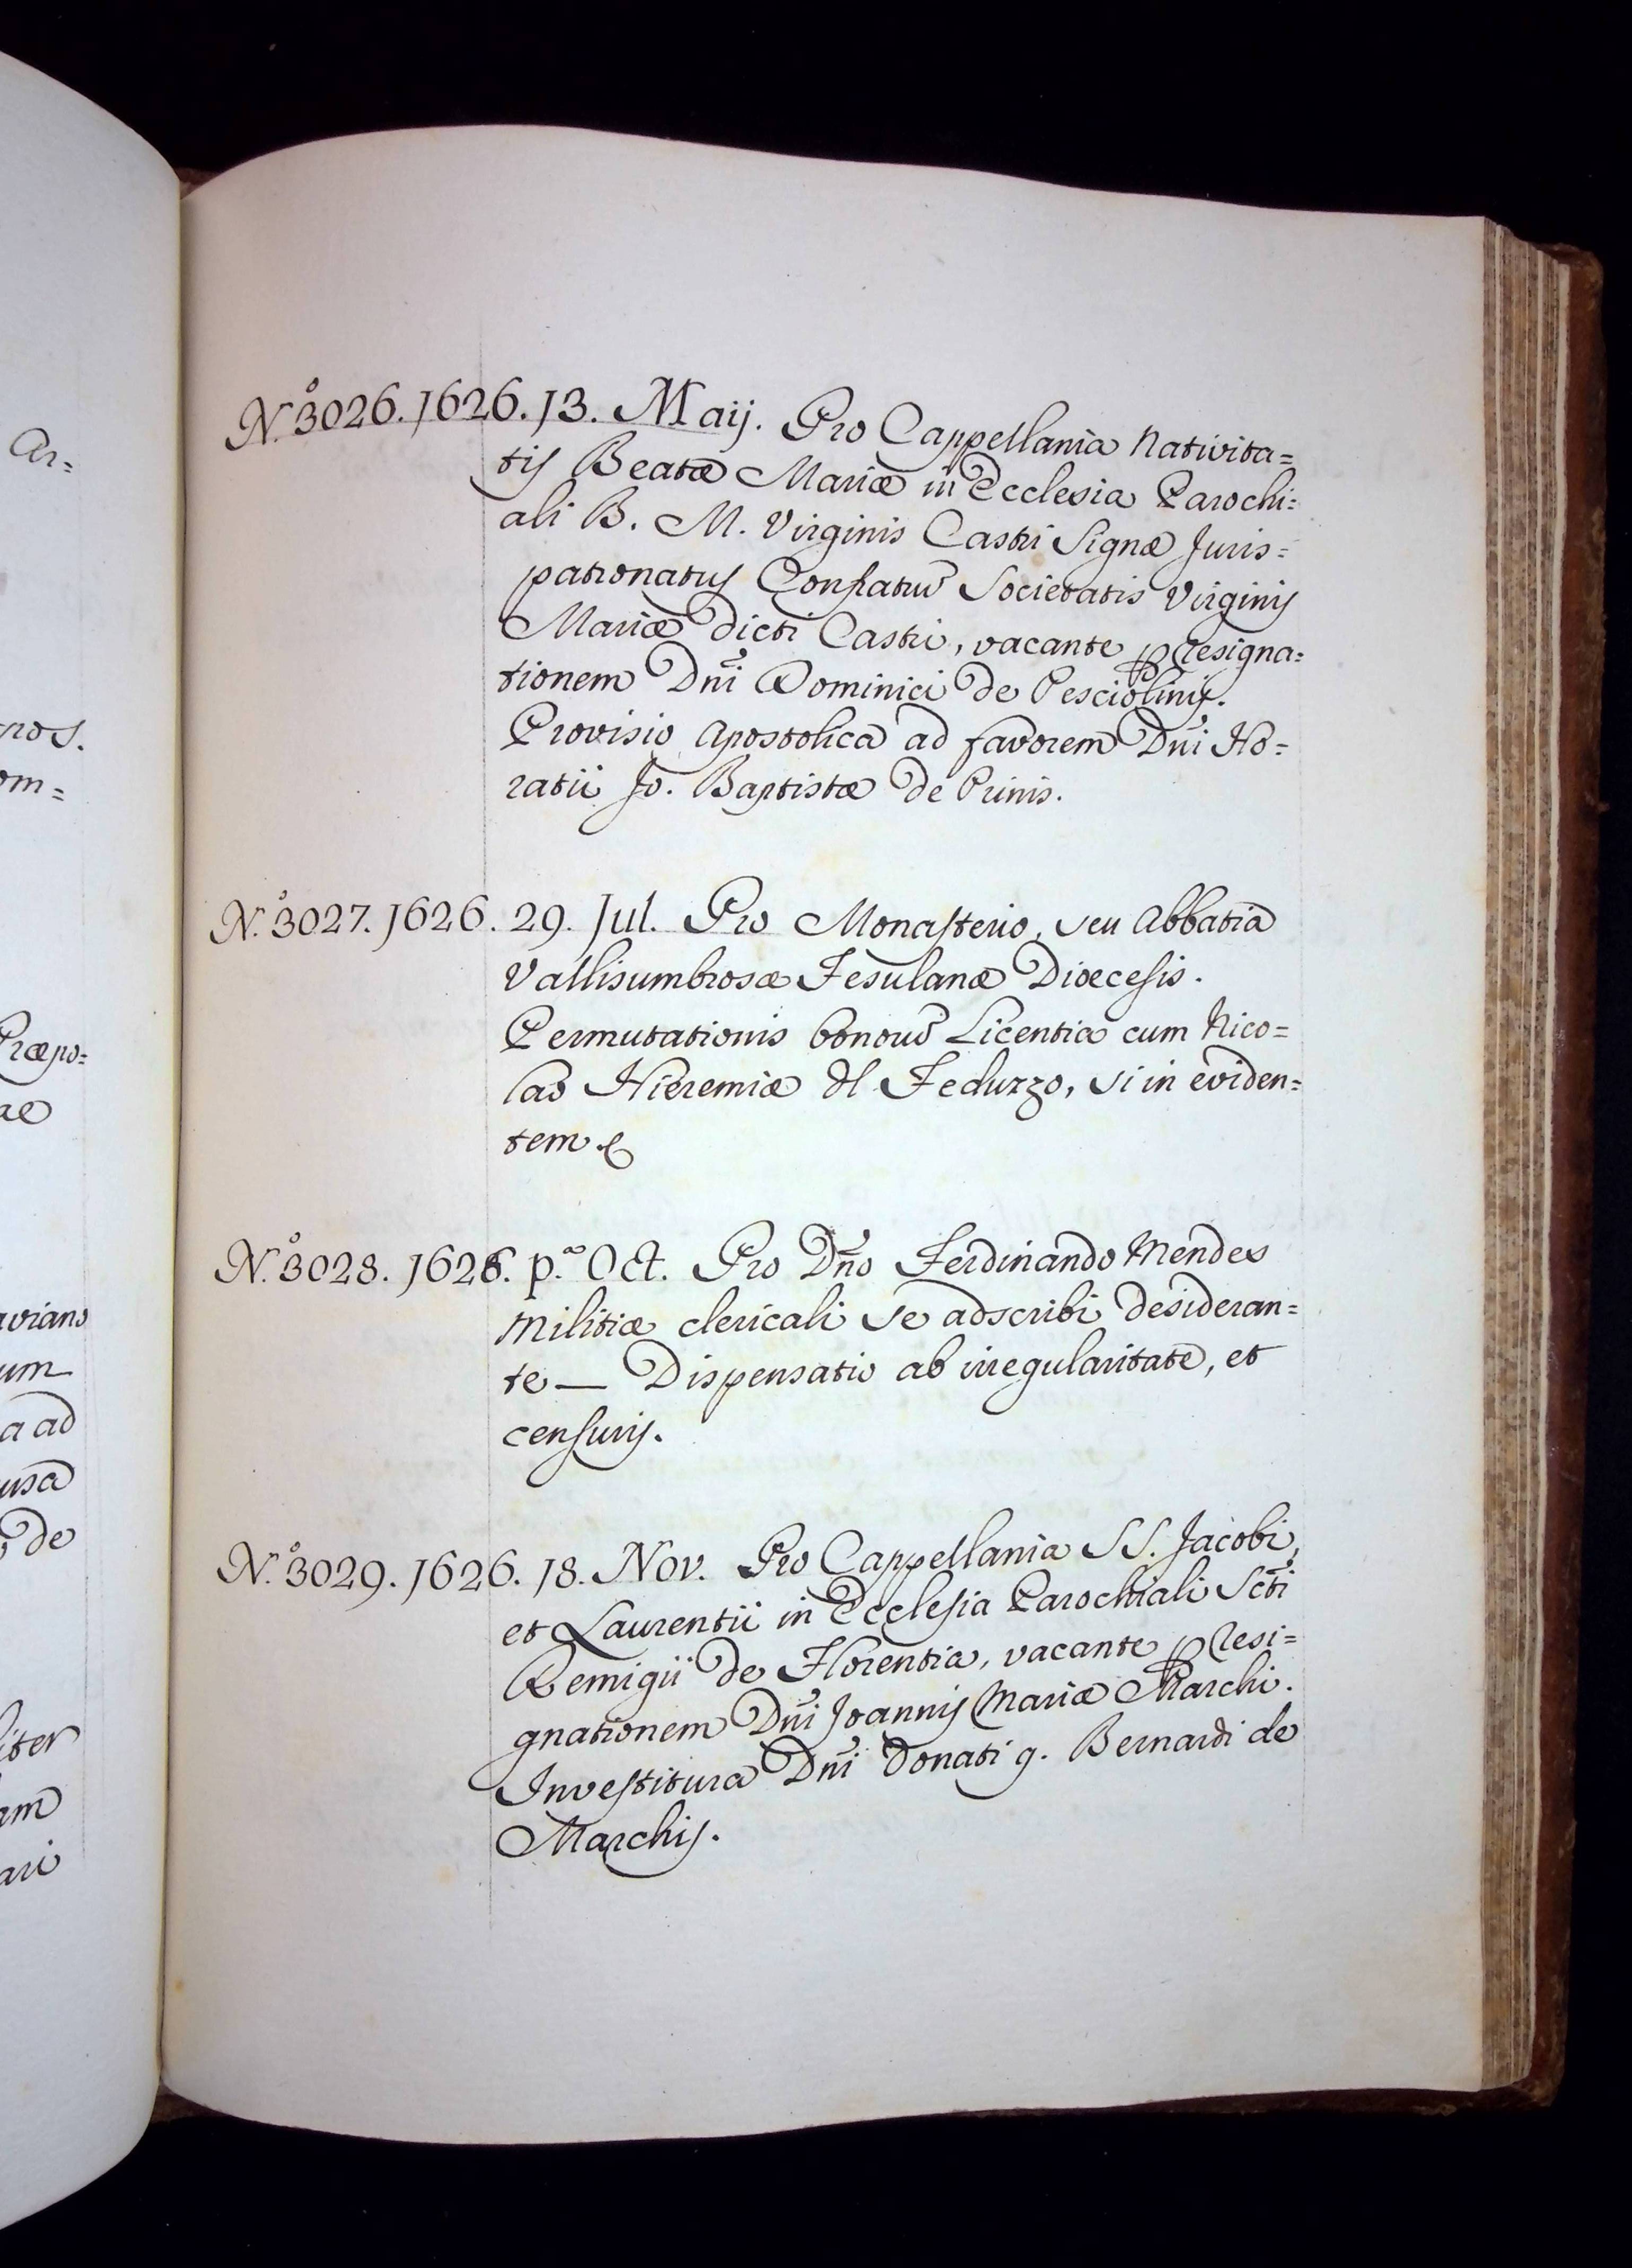 Ar=
ros.
om=
Præpo=
ae
avians
um
a ad
usa
, de
liter
am
ari
N.º 3026. 1626. 13. Maij. Pro Cappellania Nativita=
tis Beatæ Mariæ in Ecclesia Parochi=
ali B. M. Virginis Castri Signæ Juris=
patronatus Confratrũ Societatis Virginis
Mariæ dicti Castri, vacante ꝑ resigna=
tionem Dñi Dominici de Pesciolinis.
Provisio Apostolica ad favorem Dñi Ho=
ratii Jo. Baptistæ de Prinis.
N.º 3027. 1626. 29. Jul. Pro Monasterio, seu Abbatia
Vallisumbrosæ Fesulanæ Dioecesis.
Permutationis bonorũ Licentia cum Nico=
lao Hieremiæ del Feduzzo, si in eviden=
tem &
N.º 3028. 1626. p.ª Oct. Pro Dño Ferdinando Mendes
Militiæ clericali se adscribi desideran=
te — Dispensatio ab irregularitate, et
censuris.
N.º 3029. 1626. 18. Nov. Pro Cappellania SS. Jacobi,
et Laurentii in Ecclesia Parochiali Scti
Remigii de Florentia, vacante ꝑ resi=
gnationem Dñi Joannis Mariæ Marchi.
Investitura Dñi Donati q. Bernardi de
Marchis.